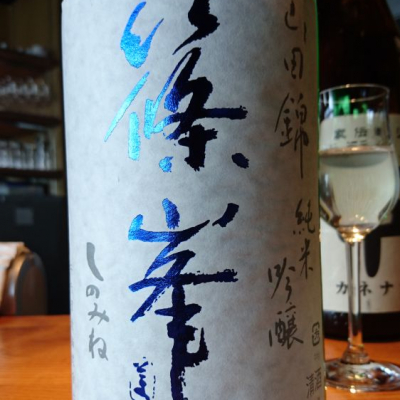 山田錦 純米吟醸
篠峯
しのみね
清酒
カネナ